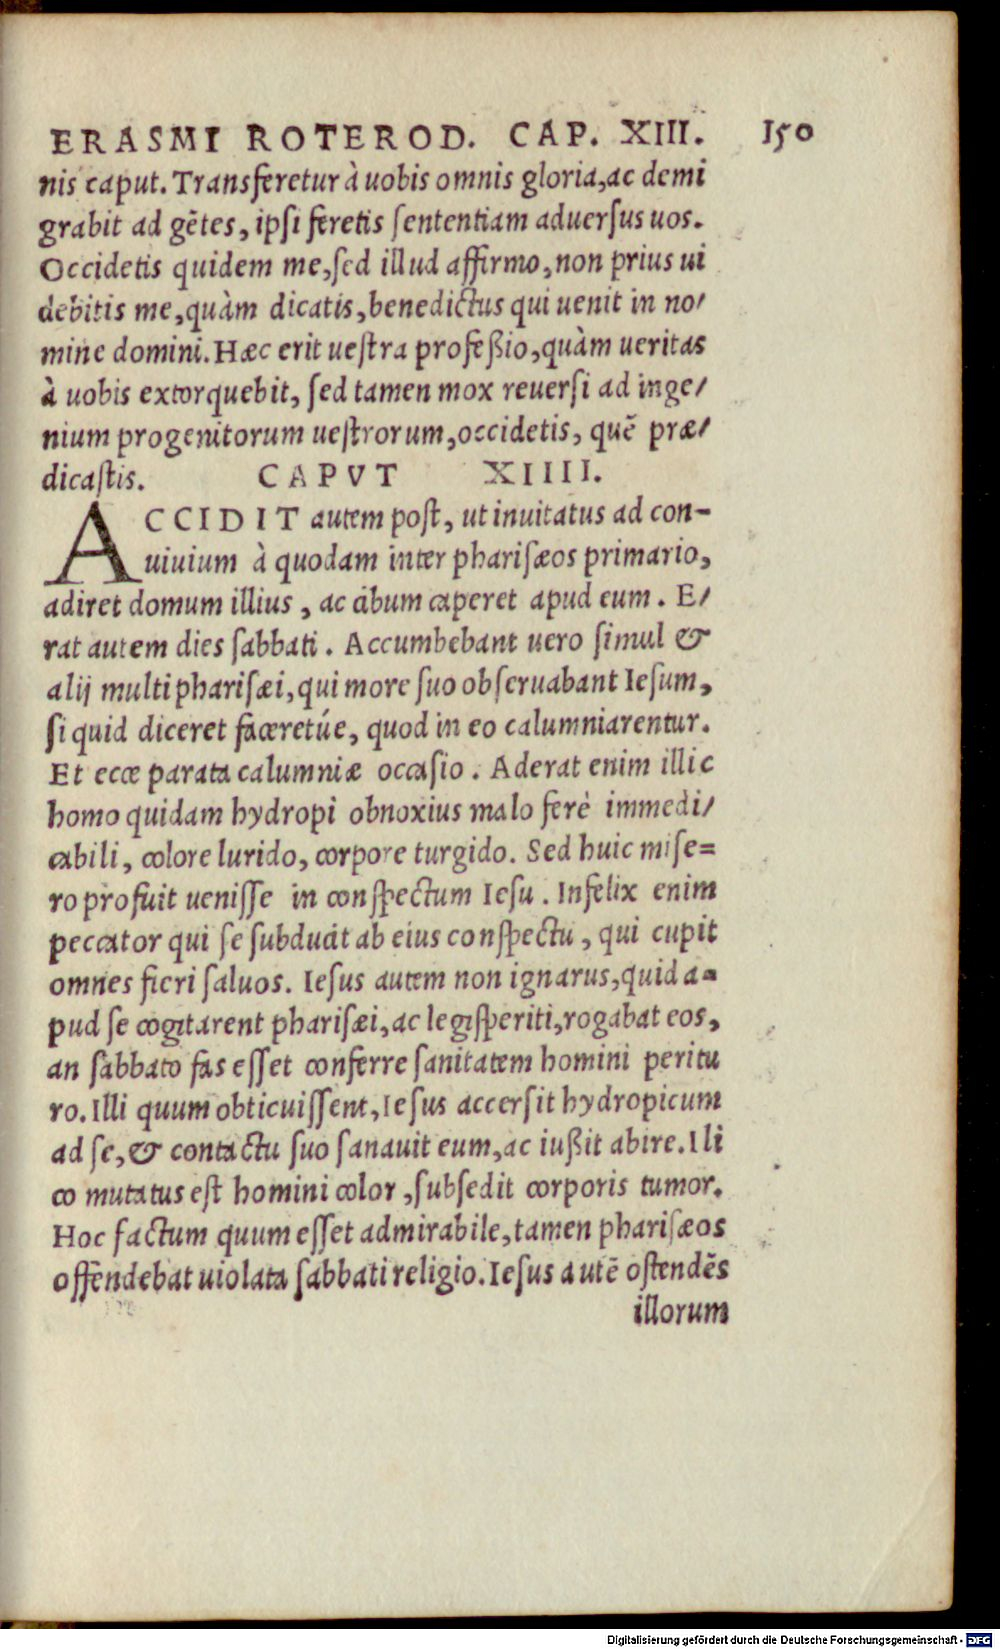 ERASMI ROTEROD. CAP. XIII. 150
nis caput. Transferetur à uobis omnis gloria, ac demi
grabit ad gẽtes, ipsi feretis sententiam aduersus uos.
Occidetis quidem me, sed illud affirmo, non prius ui
debitis me, quàm dicatis, benedictus qui uenit in no/
mine domini. Hæc erit uestra profeßio, quàm ueritas
à uobis extorquebit, sed tamen mox reuersi ad inge/
nium progenitorum uestrorum, occidetis, quẽ præ/
dicastis. CAPVT XIIII.
ACCIDIT autem post, ut inuitatus ad con-
uiuium à quodam inter pharisæos primario,
adiret domum illius, ac cibum caperet apud eum. E/
rat autem dies sabbati. Accumbebant uero simul &
alij multi pharisæi, qui more suo obseruabant Iesum,
si quid diceret faceretúe, quod in eo calumniarentur.
Et ecce parata calumniæ occasio. Aderat enim illic
homo quidam hydropi obnoxius malo ferè immedi/
cabili, colore lurido, corpore turgido. Sed huic mise=
ro profuit uenisse in conspectum Iesu. Infelix enim
peccator qui se subducit ab eius conspectu, qui cupit
omnes fieri saluos. Iesus autem non ignarus, quid a=
pud se cogitarent pharisæi, ac legisperiti, rogabat eos,
an sabbato fas esset conferre sanitatem homini peritu
ro. Illi quum obticuissent, Iesus accersit hydropicum
ad se, & contactu suo sanauit eum, ac iußit abire. Ili
co mutatus est homini color, subsedit corporis tumor.
Hoc factum quum esset admirabile, tamen pharisæos
offendebat uiolata sabbati religio. Iesus autẽ ostendẽs
illorum
Digitalisierung gefördert durch die Deutsche Forschungsgemeinschaft - DFG